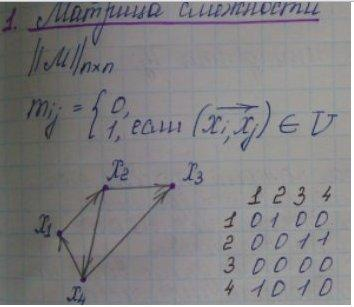 1. Матрица смежности
||M||n×n
mij = { 0,
1, если (xi, xj) ∈ U
x2 x3
x1
x4
1 2 3 4
1 0 1 0 0
2 0 0 1 1
3 0 0 0 0
4 1 0 1 0